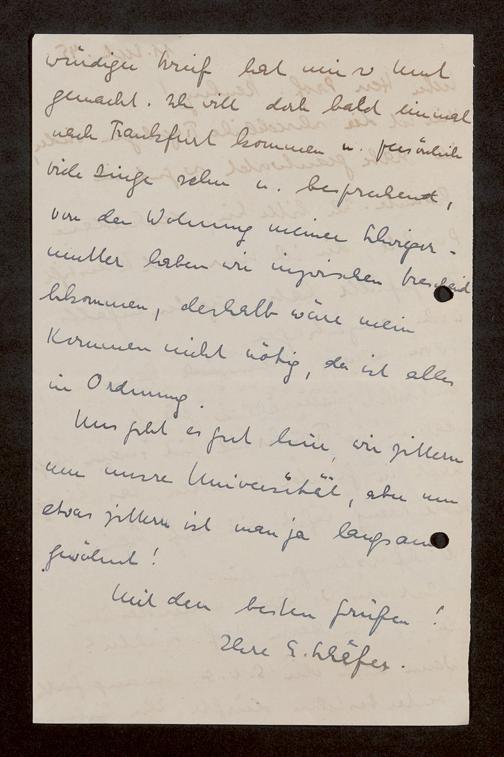 würdiger Brief hat mir so Mut
gemacht. Ich will doch bald einmal
nach Frankfurt kommen u. persönlich
viele Dinge sehen u. besprechend,
von der Wohnung meiner Schwieger-
mutter haben wir inzwischen bescheid
bekommen, deshalb wäre mein
Kommen nicht nötig, da ist alles
in Ordnung.
Uns geht es gut hier, wir zittern
um unsre Universität, aber um
etwas zittern ist man ja langsam
gewöhnt!
Mit den besten Grüßen!
Ihre E. Schäfer.